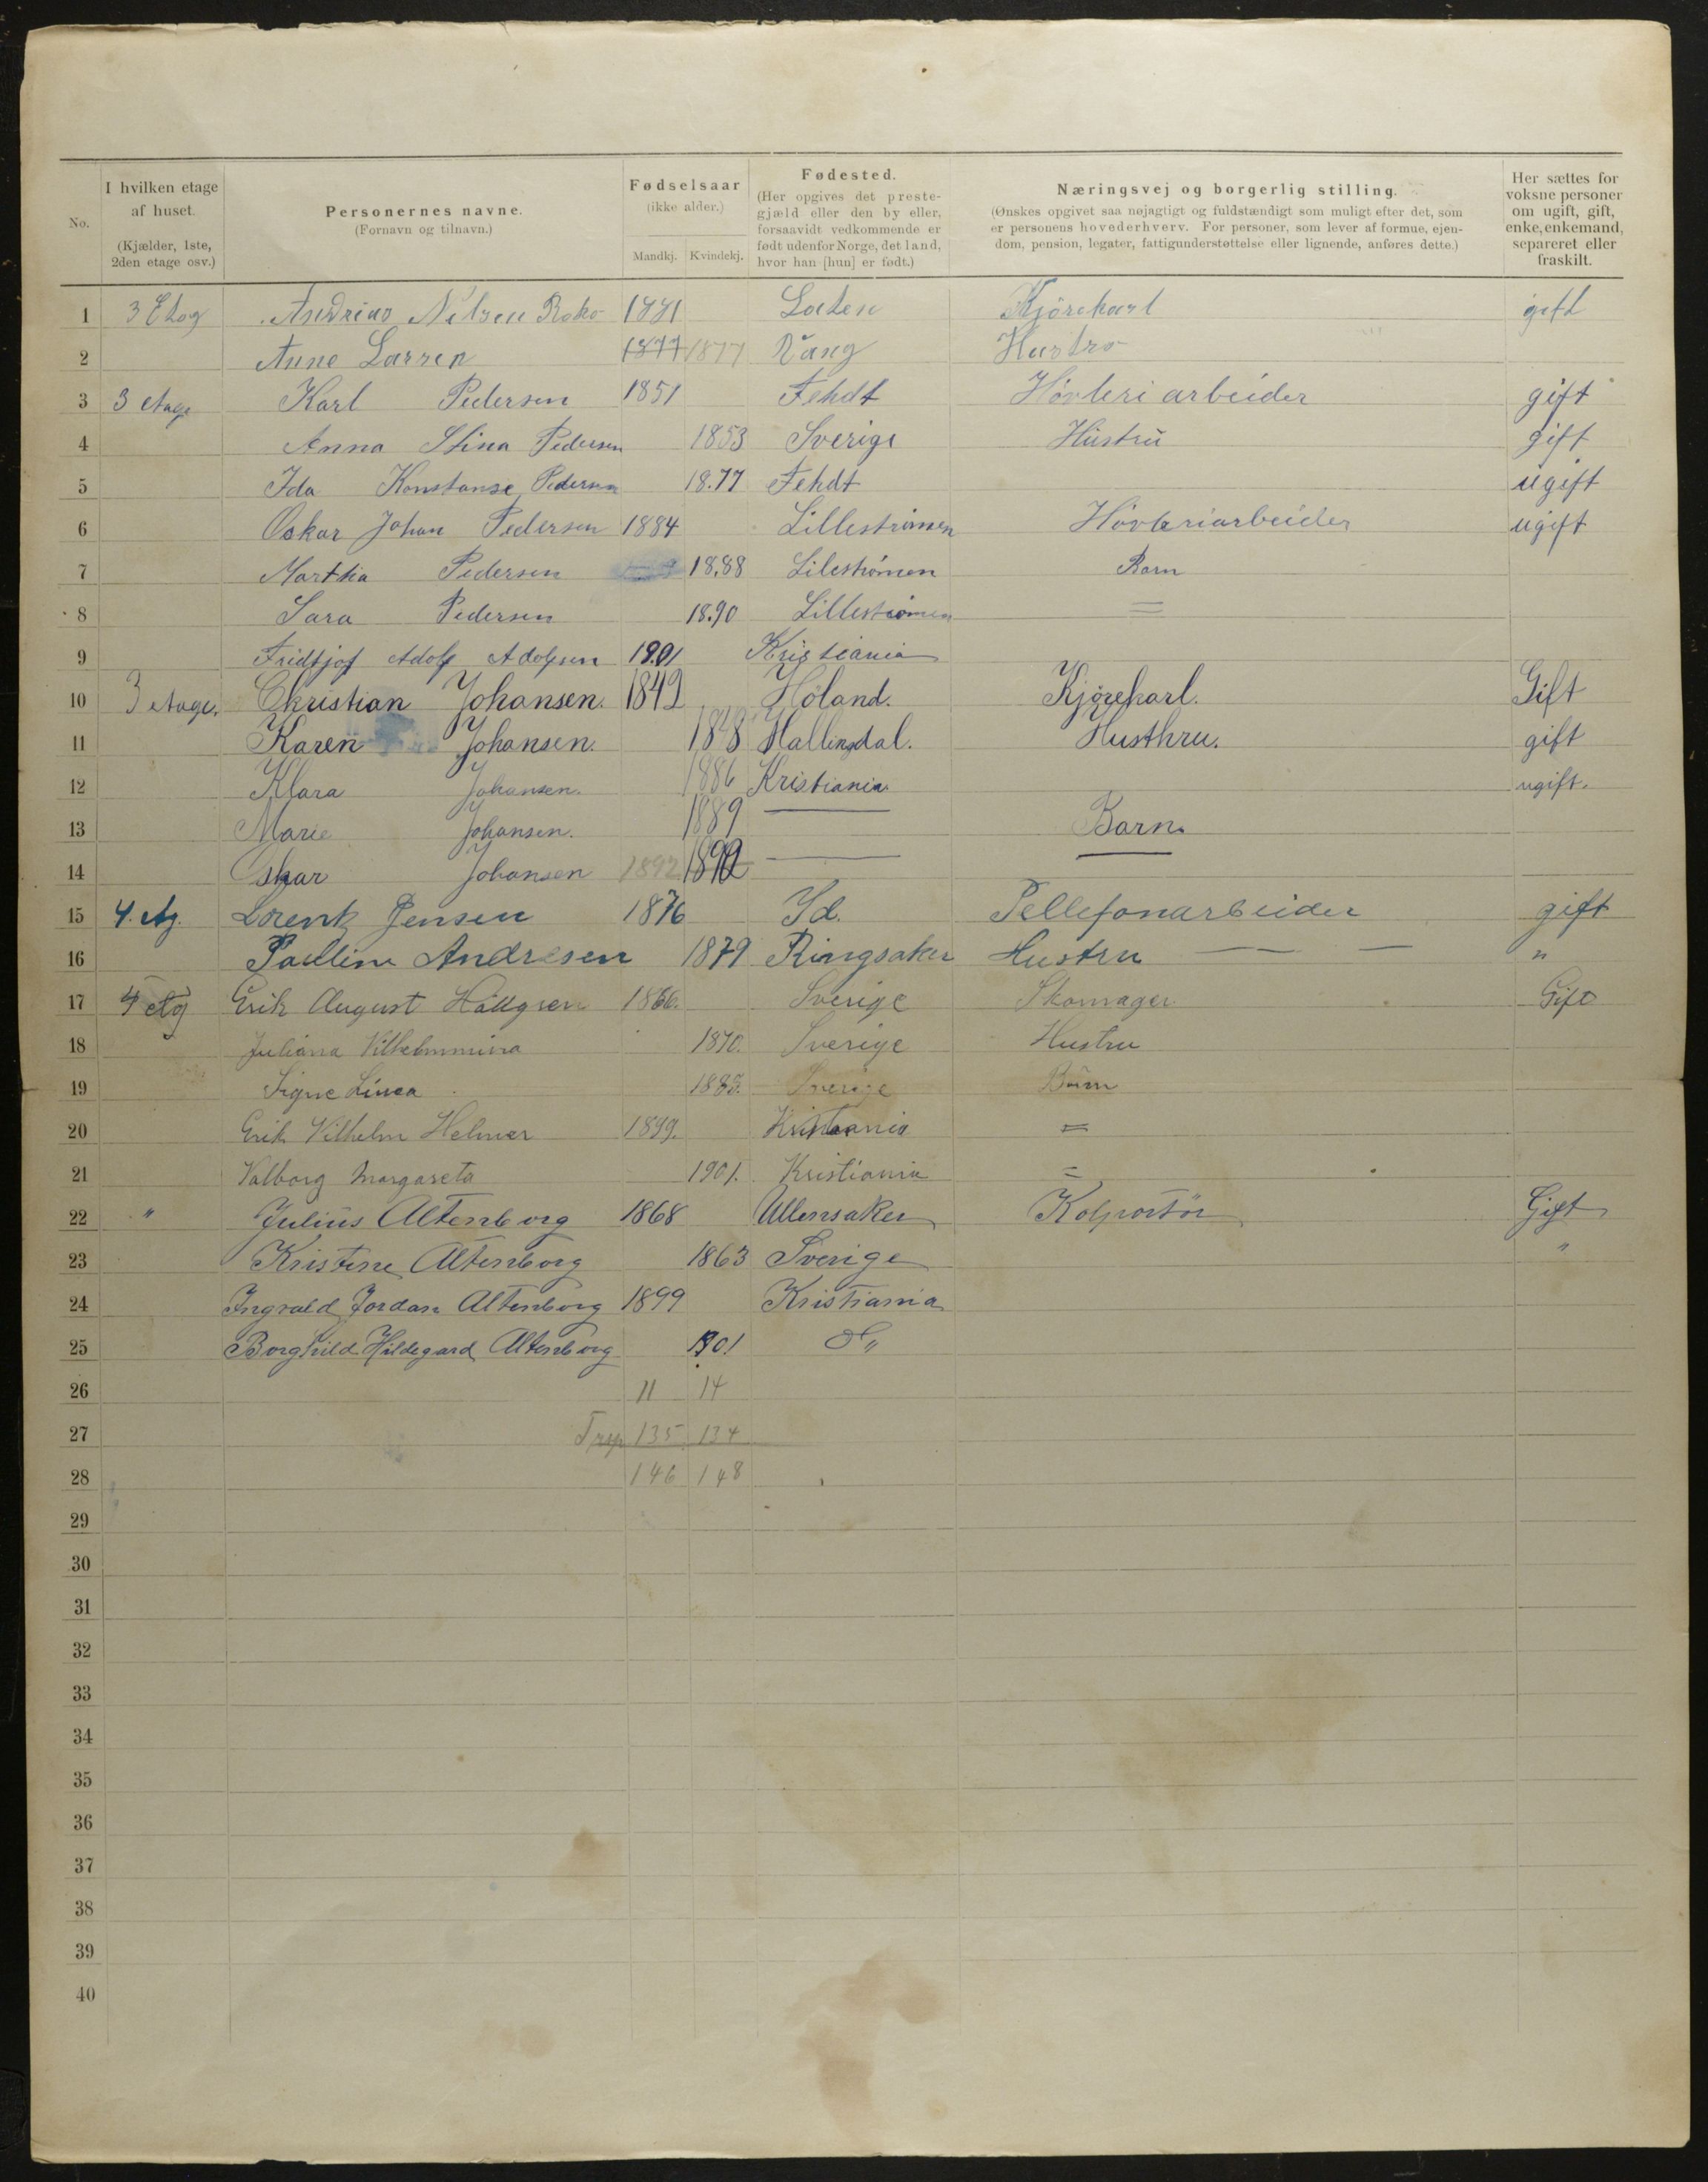 No.
I hvilken etage af huset.
(Kjælder, 1ste, 2den etage osv.)
Personernes navne.
(Fornavn og tilnavn.)
Fødselsaar
(ikke alder.)
Mandkj. Kvindekj.
Fødested.
(Her opgives det prestegjæld eller den by eller, forsaavidt vedkommende er født udenfor Norge, det land, hvor han [hun] er født.)
Næringsvej og borgerlig stilling.
(Ønskes opgivet saa nøjagtigt og fuldstændigt som muligt efter det, som er personens hovederhverv. For personer, som lever af formue, ejendom, pension, legater, fattigunderstøttelse eller lignende, anføres dette.)
Her sættes for voksne personer om ugift, gift, enke, enkemand, separeret eller fraskilt.
1 3 Etag Andreas Nilsen 1881 Loeten Kjørekarl gift
2 Anne Larsen 1877 1877 Vang Hustro
3 3 etage Karl Pedersen 1851 Fehdt Høvleri arbeider gift
4 Anna Stina Pedersen 1853 Sverige Hustru gift
5 Ida Konstanse Pedersen 18.77 Fehdt ugift
6 Oskar Johan Pedersen 1884 Lillestrømen Høvleriarbeider ugift
7 Martha Pedersen 18.88 Lilestrømen Barn
8 Sara Pedersen 18.90 Lillestrømen =
9 Fridtjof Adolf Adolfsen 19.01 Kristiania
10 3 etage. Christian Johansen. 1842 Høland. Kjørekarl. Gift
11 Karen Johansen. 1848 Hallingdal. Husthru. gift
12 Klara Johansen. 1886 Kristiania. ugift.
13 Marie Johansen. 1889 — Barn.
14 Oskar Johansen 1892 1892 — —
15 4. etg. Lorentz Jensen 1876 Id. Tellefonarbeider gift
16 Pauline Andresen 1879 Ringsaker Hustru — — "
17 4 etg Erik August Hallgren 1866. Sverige Skomager Gift
18 Juliana Vilhelmmina 1870. Sverige Hustru
19 Signe Linea 1885. Sverige Børn
20 Erik Vilhelm Helmer 1899. Kristiania =
21 Valborg Margareta 1901. Kristiania =
22 " Julius Altenborg 1868 Ullensaker Kolportør Gift
23 Kristine Altenborg 1863 Sverige "
24 Ingvald Jordan Altenborg 1899 Kristiania
25 Borghild Hildegard Altenborg 1901 do "
26 11 14
27 Trsp 135 134
28 146 148
29
30
31
32
33
34
35
36
37
38
39
40